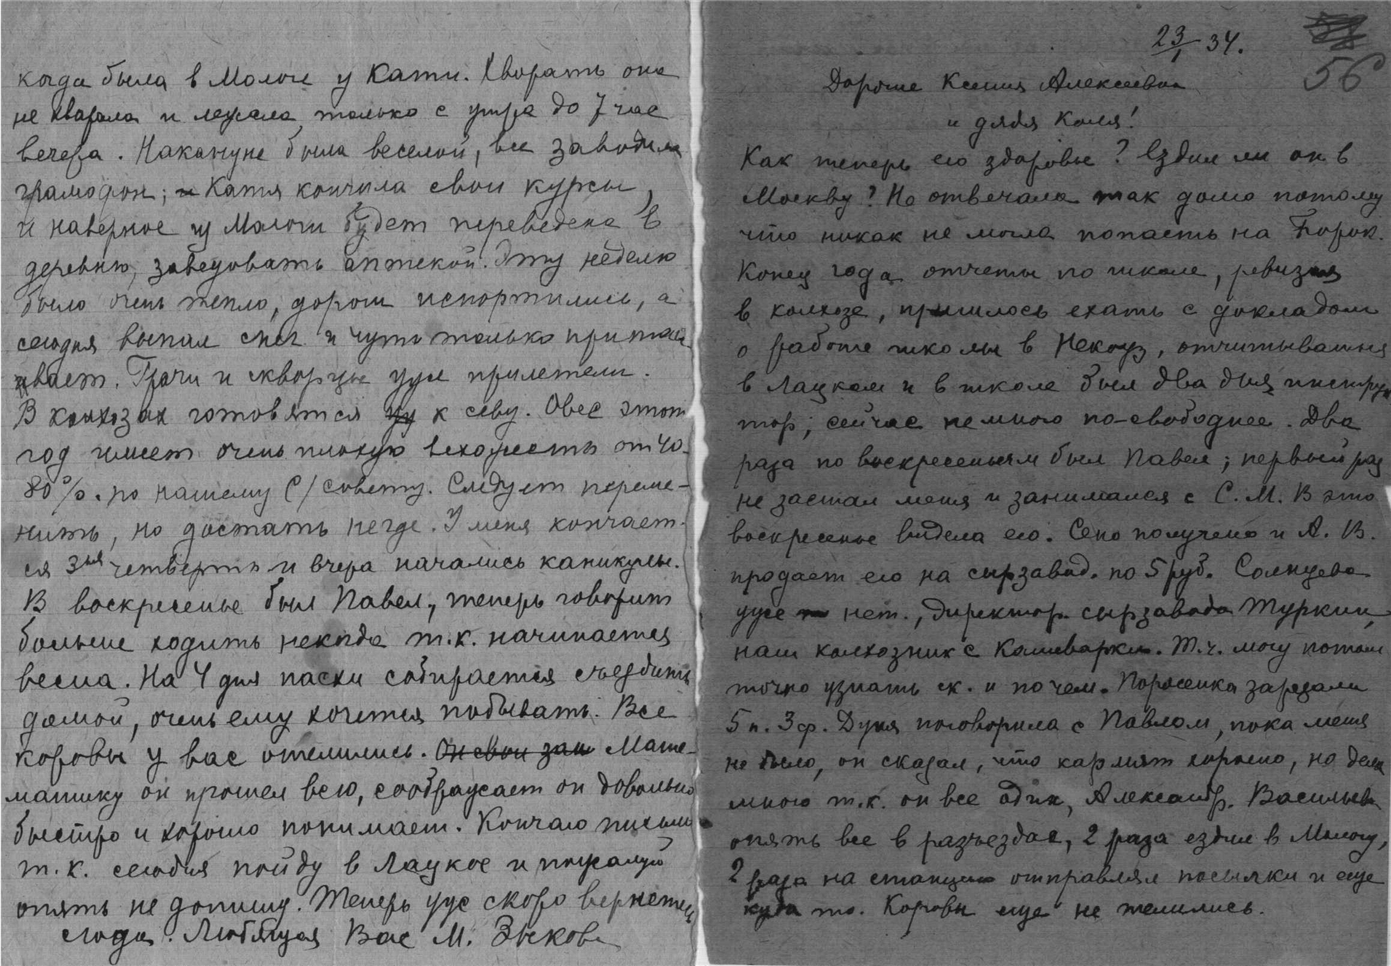 когда была в Мологе у Кати. Хворать она
не хворала и лежала только с утра до 7 час
вечера. Накануне была веселой, все заводила
грамофон; и Катя кончила свои курсы,
и наверное из Мологи будет переведена в
деревню, заведовать аптекой. Эту неделю
было очень тепло, дороги испортились, а
сегодня выпал снег и чуть только притаи
вает. Грачи и скворцы уже прилетели.
В колхозах готовятся к севу. Овес этот
год имеет очень плохую всхожесть от 40-
80%. по нашему С/совету. Следует переме-
нить, но достать негде. У меня кончает-
ся 3ья четверть и вчера начались каникулы.
В воскресенье был Павел, теперь говорит
больше ходить некогда т.к. начинается
весна. На 4 дня пасхи собирается съездить
домой, очень ему хочется побывать. Все
коровы у вас отелились. Он свои зан Мате-
матику он прошел всю, соображает он довольно
быстро и хорошо понимает. Кончаю письмо
т.к. сегодня пойду в Лацкое и пожалуй
опять не допишу. Теперь уже скоро вернетесь
сюда. Любящая Вас М. Зыкова
23/I 34.
56
Дорогие Ксения Алексеевна
и дядя Коля!
Как теперь его здоровье? Ездил ли он в
Москву? Не отвечала так долго потому
что никак не могла попасть на Борок.
Конец года отчеты по школе, ревизия
в колхозе, пришлось ехать с докладом
о работе школы в Некоуз, отчитываться
в Лацком и в школе был два дня инструк
тор; сейчас немного по-свободнее. Два
раза по воскресеньям был Павел; первый раз
не застал меня и занимался с С. М. В это
воскресенье видела его. Сено получено и А. В.
продает его на сырзавод. по 5 руб. Солнцева
уже нет., директор сырзавода Туркин,
наш колхозник с Кашеварки. Т.ч. могу потом
точно узнать ск. и по чем. Поросенка зарезали
5 п. 3 ф. Дуня поговорила с Павлом, пока меня
не было, он сказал, что кормят хорошо, но дела
много т.к. он все один, Александр. Васильев.
опять все в разъездах, 2 раза ездил в Мологу,
2 раза на станцию отправлял посылки и еще
куда то. Коровы еще не телились.